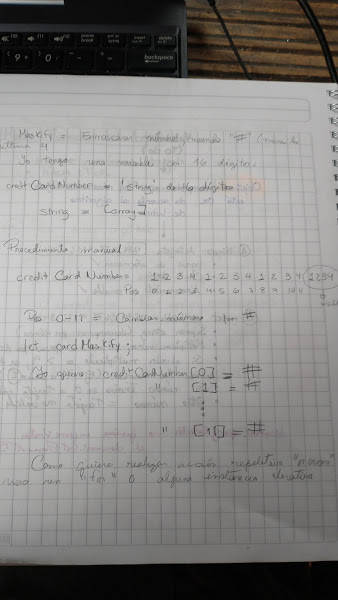 Maskify = Enmascarar número usando "#" (menos los
últimos 4
Yo tengo una variable con 16 dígitos.
credit CardNumber = 'string de 16 dígitos
string = [array]
Procedimiento manual
credit Card Number = 1 2 3 4 1 2 3 4 1 2 3 4 (1 2 3 4
Pos 0 1 2 3 4 5 6 7 8 9 10 11
Pos 0-11 = Cambiar número por #
let cardMaskify;
Yo quiero creditCardNumber [0] = #
" [1] = #
" [11] = #
Como quiero realizar acción repetitiva "
uso un "for" o alguna instancia iterativa